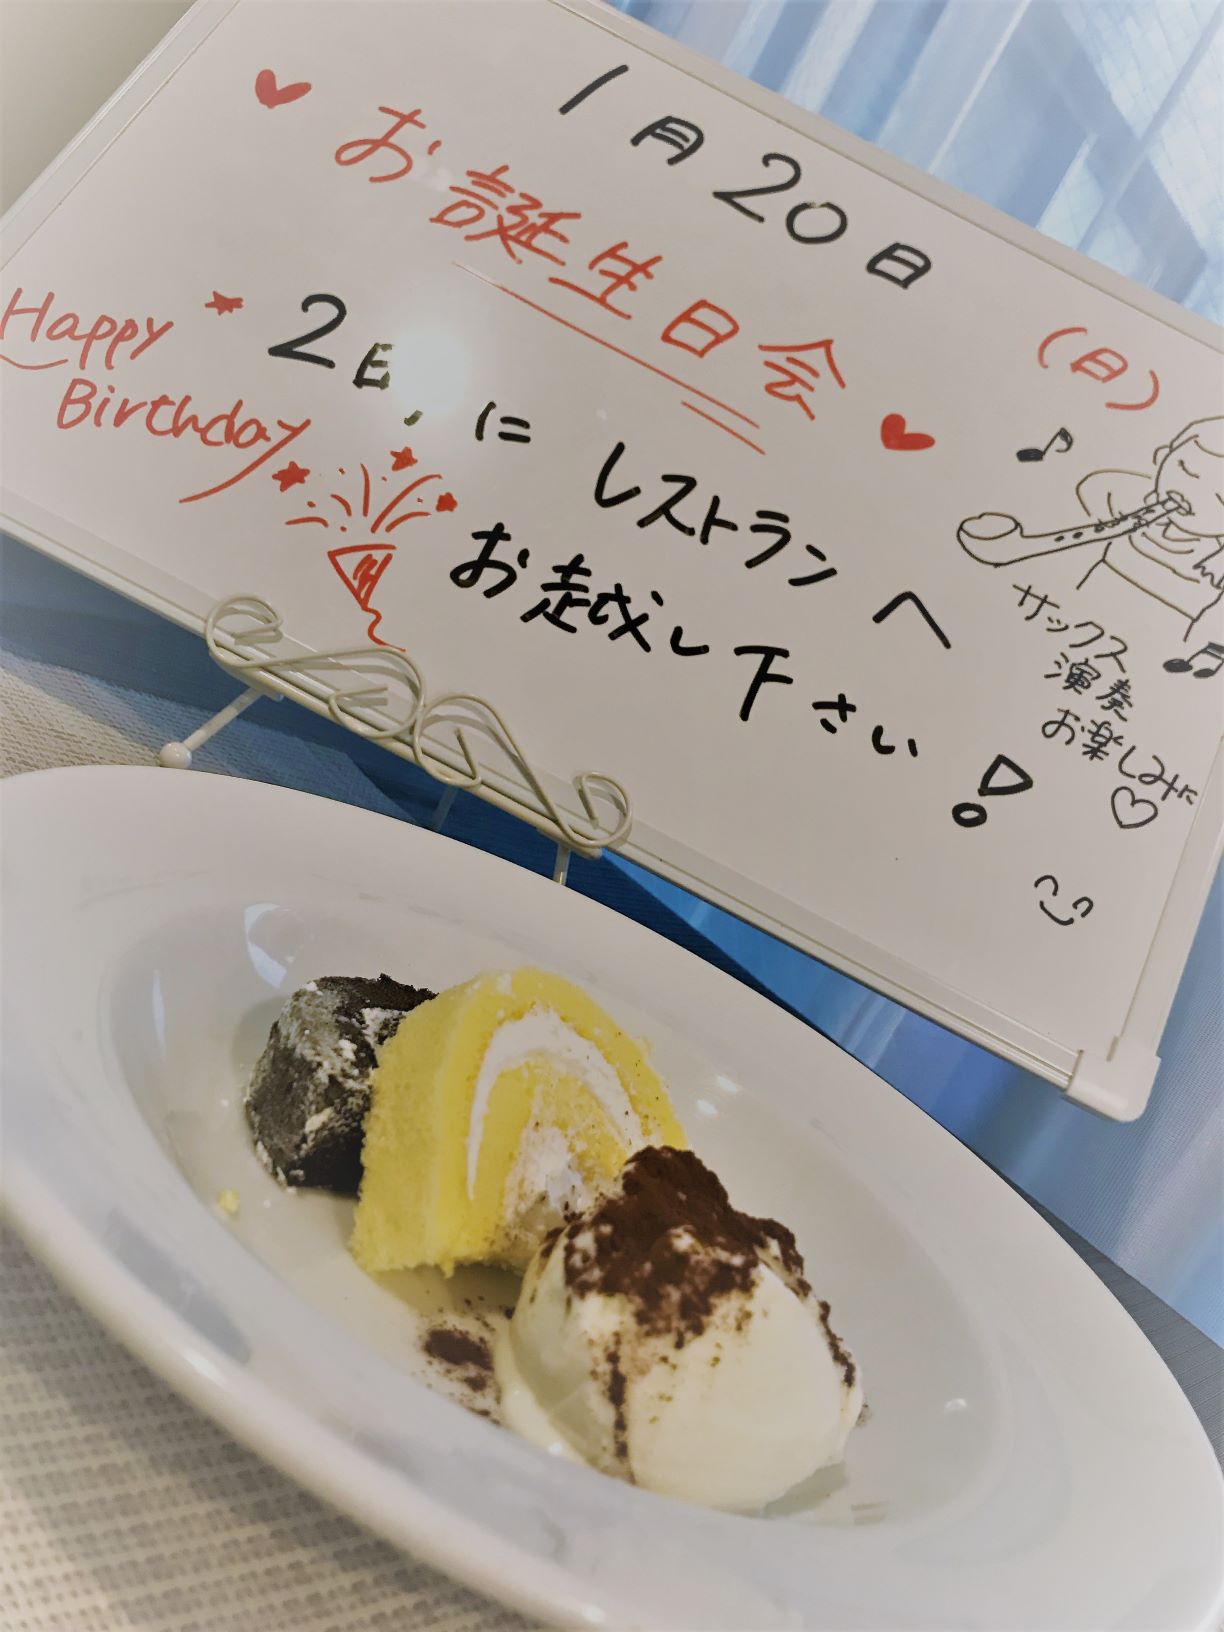 1月20日(日)
お誕生日会
Happy
Birthday
2に レストランへ
お越し下さい!
サックス
演奏
お楽しみに